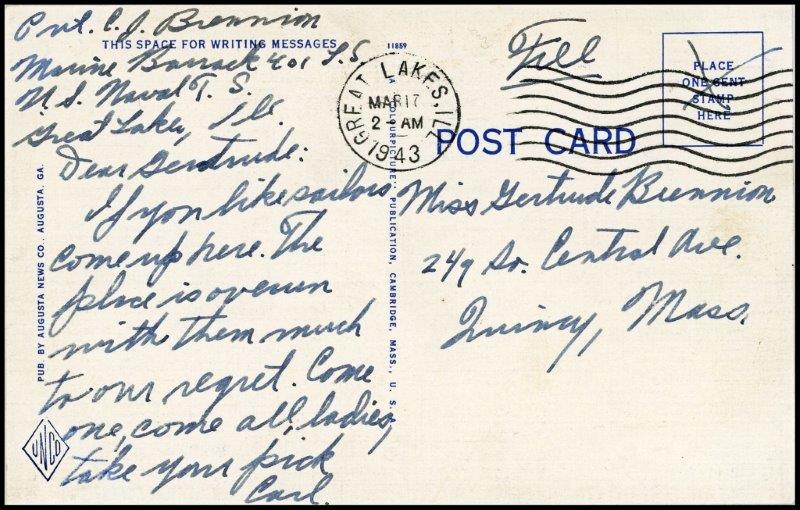 Pvt. C. J. Brennion
THIS SPACE FOR WRITING MESSAGES
Marine Barrack 401 T.S.
U S. Naval T. S.
Great Lakes, Ill.
Dear Gertrude:
If you like sailors
come up here. The
place is overun
with them much
to our regret. Come
one, come all, ladies,
take your pick
Carl.
PUB. BY AUGUSTA NEWS CO., AUGUSTA, GA.
UNCO
11859
A "COLOURPICTURE" PUBLICATION, CAMBRIDGE, MASS., U. S. A.
GREAT LAKES, ILL
MAR 17
2 - AM
1943
Free
PLACE
ONE CENT
STAMP
HERE
POST CARD
Miss Gertrude Brennion
249 So. Central Ave.
Quincy, Mass.